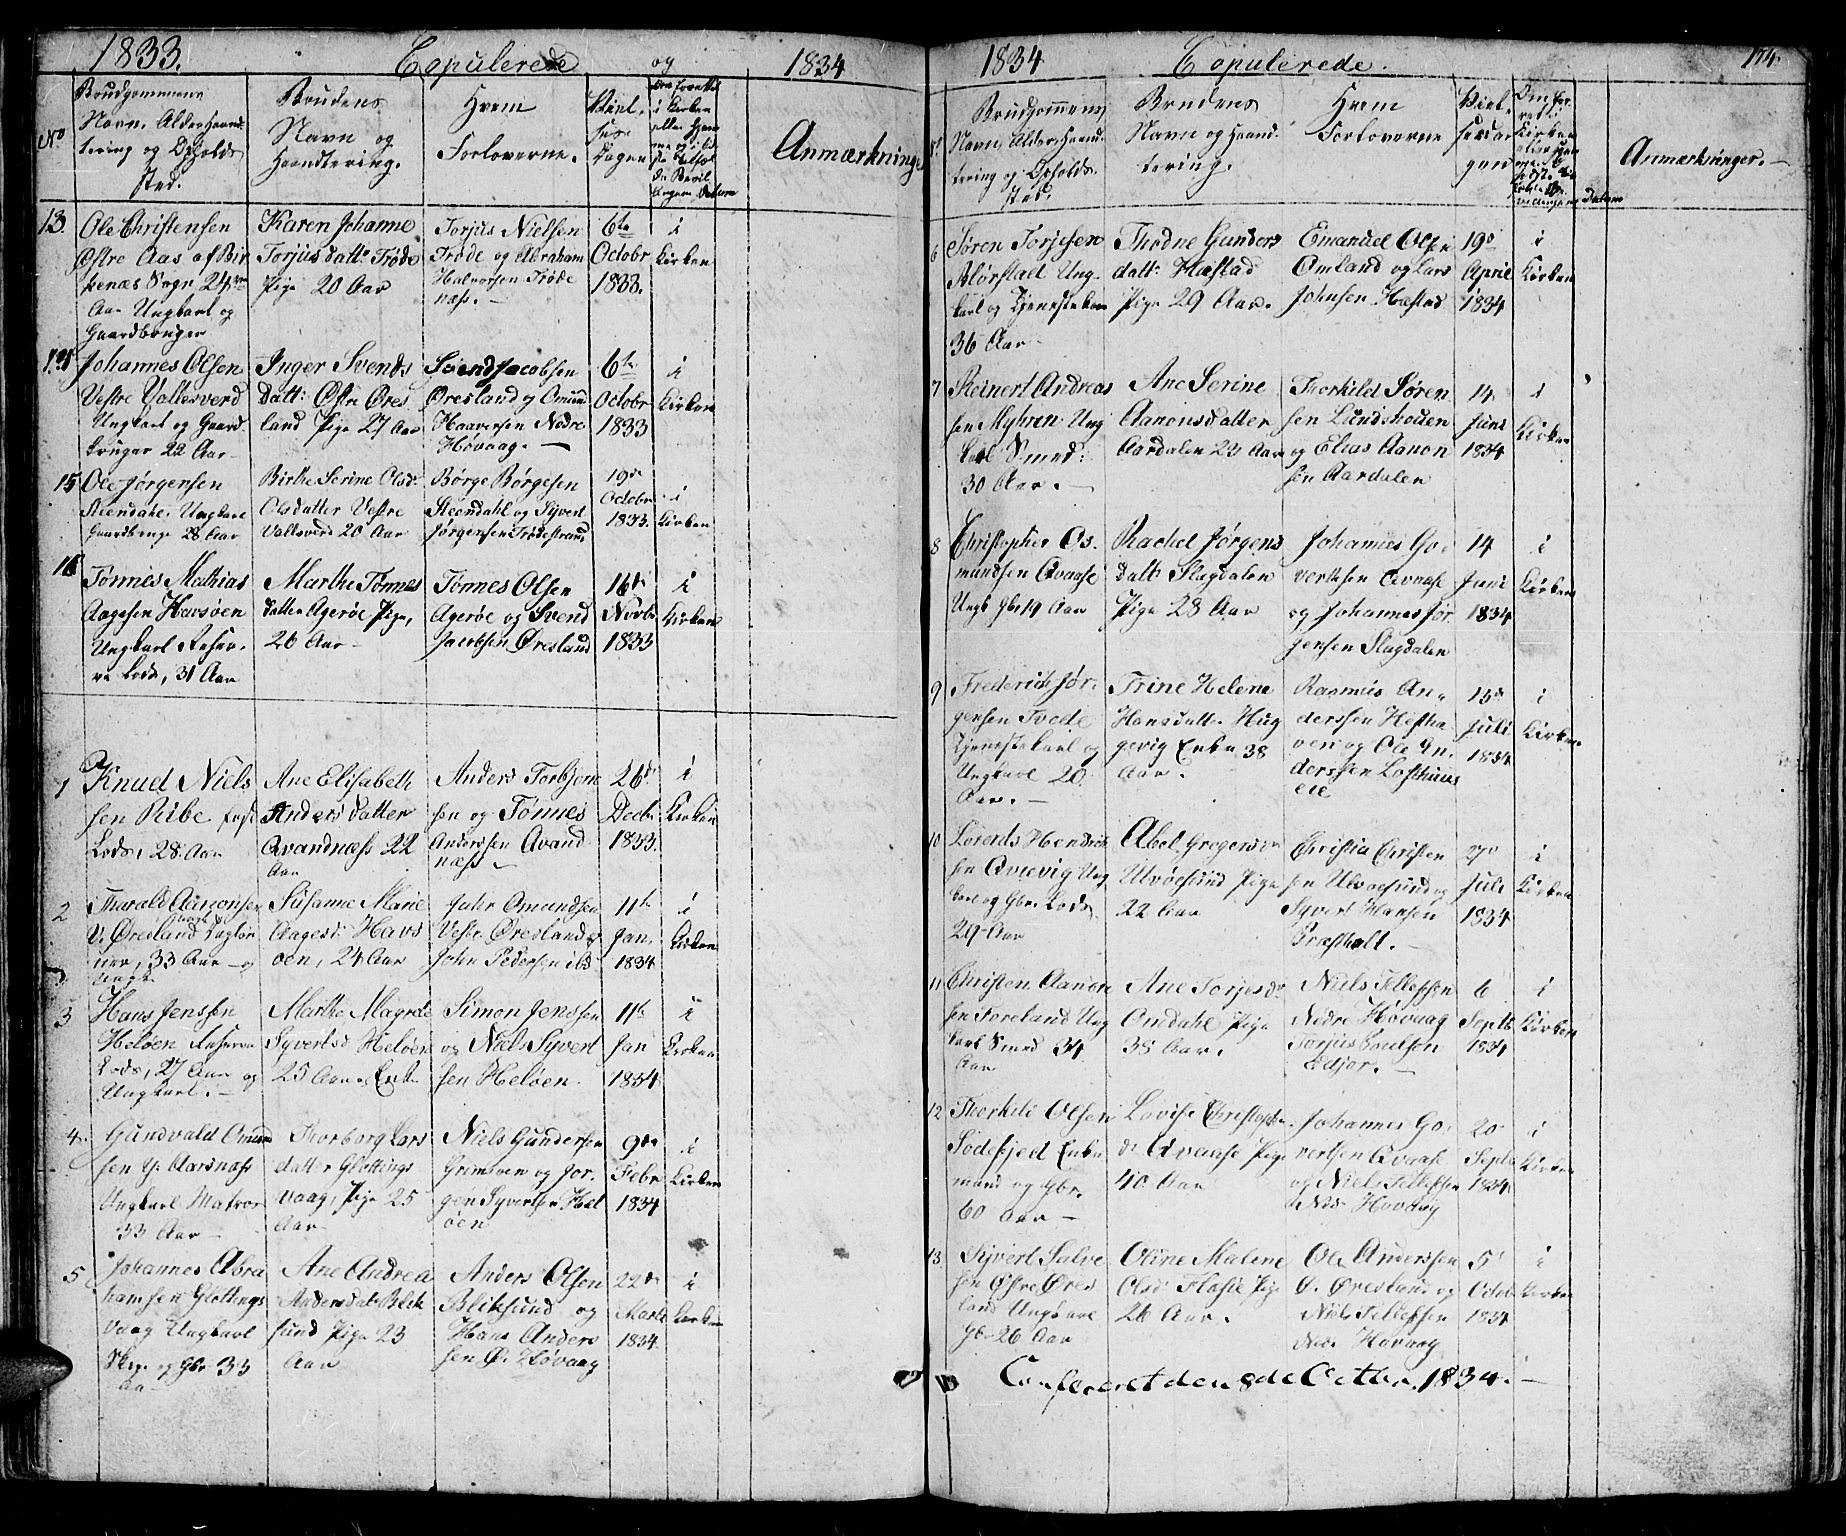 1833.
Copulerede
og
1834
No
Brudgommens
Navn, Alder Haand-
tering og Opholds
Sted.
Brudens
Navn og
Haandtering.
Hvem
Forloverne.
Viel-
ses
Dagen
i Kirken
Anmærkninger
13.
Ole Christensen
Østre Aas af Bir
kenæs Sogn 24
Aar Ungkarl og
Gaardbruger
Karen Johanne
Torjusdatt: Trøde
Pige 20 Aar
Torjus Nielsen
Trøde og Abraham
Halvorsen Trøde
næss.
6te
Octobr
1833.
i
Kirken
14
Johannes Olsen
Vestre Vallesverd
Ungkarl og Gaard-
bruger 22 Aar
Inger Svends
Datt: Østre Øres
land Pige 27 Aar
Svend Jacobsen
Øresland og Omund
Haaversen Nedre
Høvaag.
6te
Octobr
1833
i
Kirken
15
Ole Jørgensen
Steendahl, Ungkarl
Gaardbruge 28 Aar
Birthe Serine Olsd:
Olsdatter Vestre
Vallesverd 20 Aar
Børge Børgesen
Steendahl og Syvert
Jørgensen Trødestrand
19de
Octobr
1833.
i
Kirken
16
Tønnes Mathias
Aagesen Havsøen
Ungkarl Reser-
ve Lods, 31 Aar
Marthe Tønnes
datter Agerøe Pige,
26 Aar
Tønnes Olsen
Agerøe og Svend
Jacobsen Øresland
16de
Novbr
1833
i
Kirken
1
Knud Niels
sen Ribe fast
Lods, 28 Aar
Ane Elisabeth
Andersdatter
Qvandnæss 22
Aar
Anders Torbjørn
sen og Tønnes
Anderssen Qvand
næss
26de
Decbr
1833.
i
Kirken
2
Tharald Aanonsen
V. Øresland
33 Aar og
Ungk.
Susanne Marie
Aagesd: Havs
øen, 24 Aar
Omundsen
Vestr. Øresland og
John Pedersen ibd
11te
Jan,
1834
i
Kirken
3
Hans Jenssen
Heløen Reserve
Lods, 27 Aar og
Ungkarl.
Marthe Magrete
Syvertsd Heløen
25 Aar Enke
Simon Jenssen
og Niels Syvert
sen Heløen.
11te
Jan
1834
i
Kirken
4.
Gundvald Omund
sen Y: Aarsnæss
Ungkarl Matros
33 Aar
Thorborg Lars
datter Glottings
vaag, Pige 25
Aar
Niels Gundersen
Grimsven og Jør.
gen Syvertsen Hel
øen
9de
Febr
1834
i
Kirken
5
Johannes Abra
hamsen Glottings
vaag Ungkarl
og Gbr 33
Aa
Ane Andrea
Andersdatt Blik
sund Pige 23
Aar
Anders Olsen
Bliksund og
Hans Anders
sen Ø. Høvaag
22de
Marts
1834.
i
Kirken
1834
Copulerede.
174.
Brudgommens
Navn, Alder Haand-
tering og Opholds
sted.
Brudens
Navn og Haand-
tering.
Hvem
Forloverne
Viel
sesda
gen
Kirken
Datum
Anmærkninger.
6
Søren Torjesen
Blørstad Ung-
karl og Tjenestekar
36 Aar
Thodne Gunders
datt: Hæstad
Pige 29 Aar.
Emanuel Olsen
Omland og Lars
Johnsen Hæstad
19de
April
1834
i
Kirken
7
Reinert Andreas
sen Myhren Ung
karl Smed:
30 Aar.
Ane Serine
Aanonsdatter
Aardalen 23 Aar
Thorkild Søren
sen Lundshouen
og Elias Aanon
sen Aardalen
14
Juni
1834
i
Kirken
8
Christopher Os.
mundsen Qvaase
Ungk Gbr 19 Aar
Rachel Jørgens
datt: Slagdalen
Pige 28 Aar
Johannes Go-
vertsen Qvaase
og Johannes Jør
gensen Slagdalen
14
Juni
1834
i
Kirken
9
Frederich Jør.
gensen Tvede
Tjenestekarl og
Ungkarl 20.
Aar.
Trine Helene
Hansdatter Hug
gevig Enke 38
Aar.
Rasmus An-
derssen Hestha
ven og Ole An.
derssen Lofthuus
eie
15de
Juli
1834
i
Kirken
10
Lorends Hendrik
sen Qvævig Ung
karl og Gbr. Lods
29 Aar
Abel Gregersd
Ulvøesund Pige
22 Aar
Christia Christen
sen Ulvøesund og
Syvert Hansen
Præstholt.
27de
Juli
1834
i
Kirken
11
Christen Aanon
sen Foreland Ung
karl Smed 34
Aar
Ane Torjesd
Omdahl Pige
35 Aar.
Niels Tellefsen
Nedre Høvaag
Torjus Poulsen
Edjor.
6
Septb
1834
i
Kirken
12
Therkild Olsen
Sødefjed Enke
mand og Gbr.
60 Aar
Lovise Christophe
dr Qvaase Pige
40 Aar
Johannes Go-
vertsen Qvaase
og Niels Tellefsen
Ned. Høvaag
20
Septb
1834.
i
Kirken
13
Syvert Salve
sen Østre Øres
land Ungkarl
Gbr 26 Aar
Oline Malene
Olsd Flasie Pige
26 Aar.
Ole Andersen
Ø. Øresland og
Niels Tellefsen
Ned. Høvaag
5t
Octob
1834
i
Kirken
Confereret den 8de Octbr. 1834.